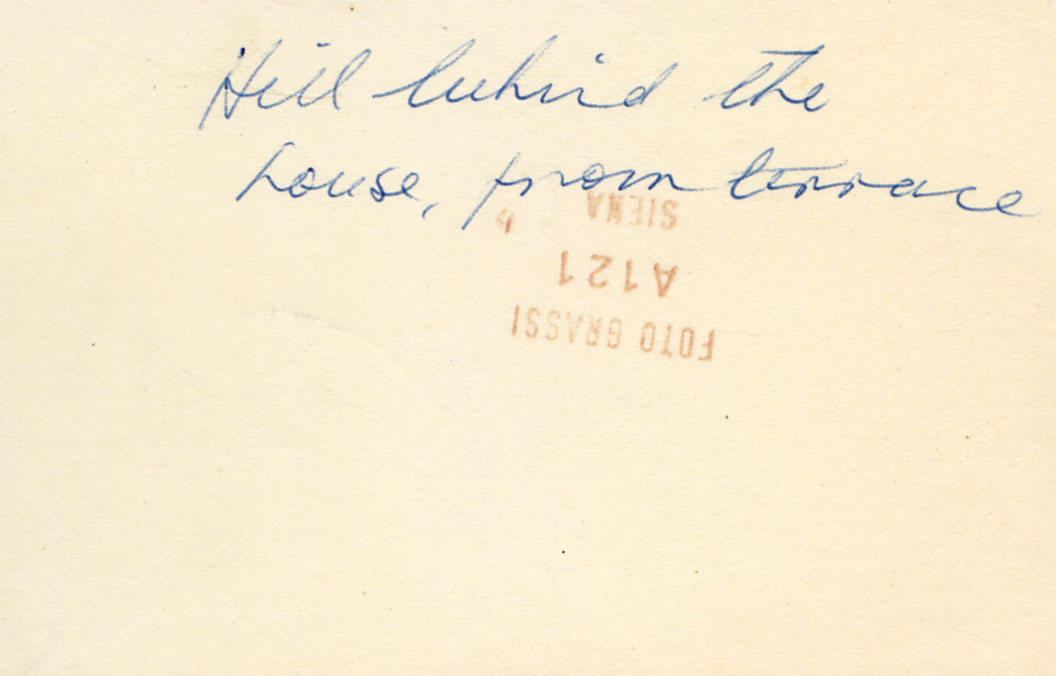 Hill behind the
house, from terrace
FOTO GRASSI
A121
SIENA